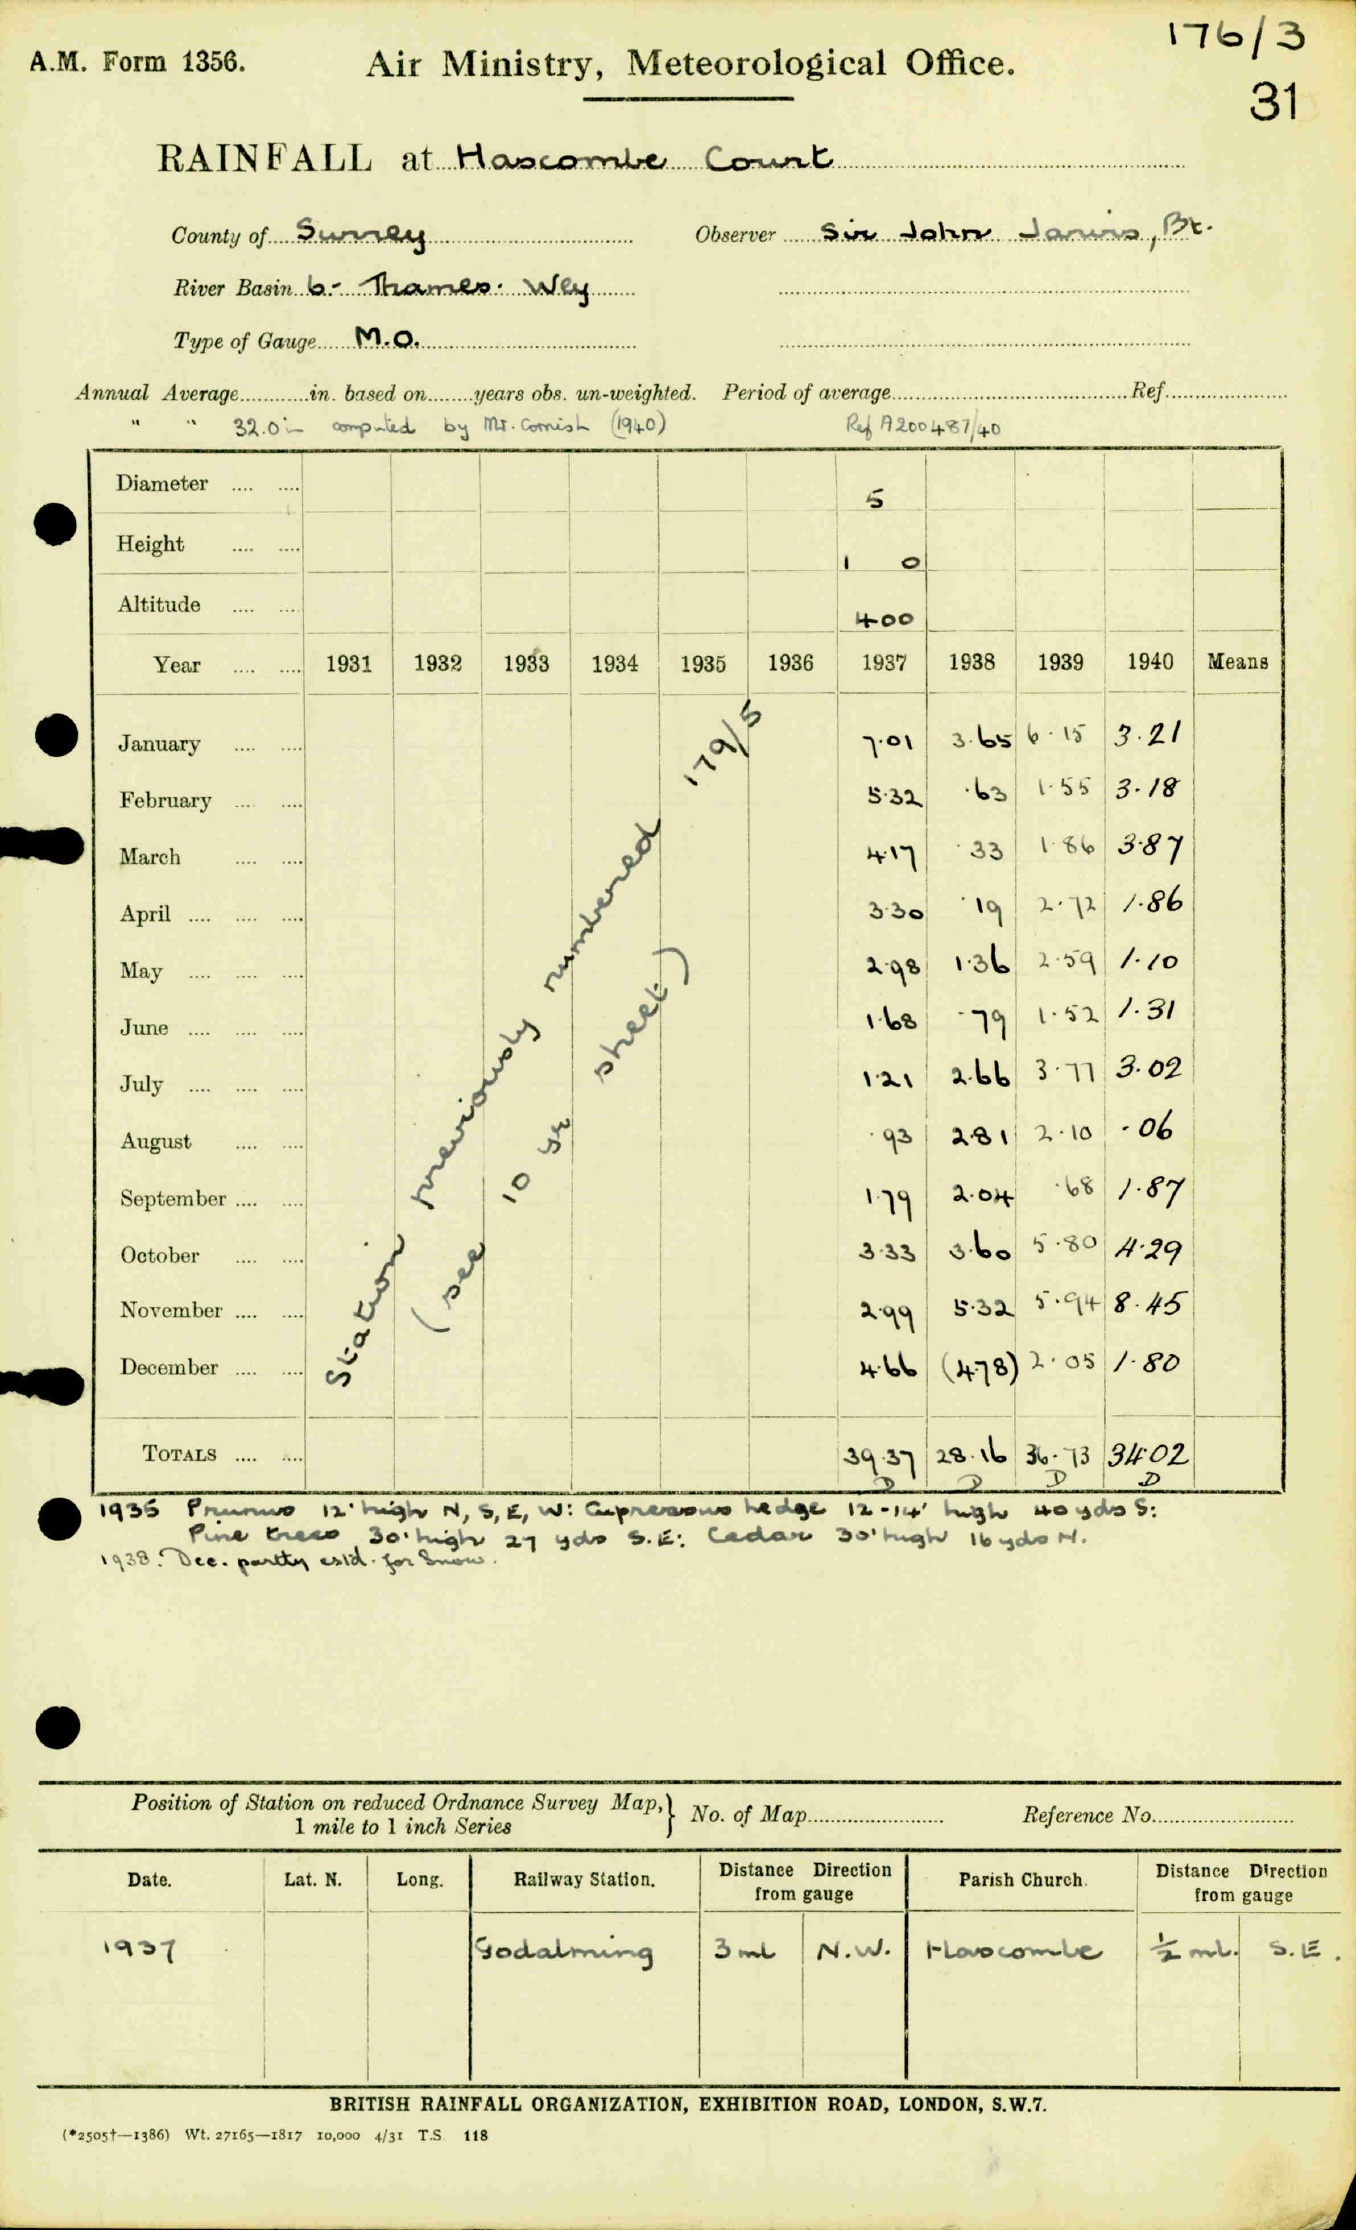 176/3
A.M. Form 1356. Air Ministry, Meteorological Office.
31
RAINFALL at Hascombe Court
County of Surrey Observer Sir John Jarvis, Bt.
River Basin 6.- Thames. Wey
Type of Gauge M.O.
Annual Average in. based on years obs. un-weighted. Period of average Ref.
" " 32.0 in computed by Mr. Cornish (1940) Ref A200487/40
Diameter 5
Height 1 0
Altitude 400
Year 1931 1932 1933 1934 1935 1936 1937 1938 1939 1940 Means
January 7.01 3.65 6.15 3.21
February 5.32 .63 1.55 3.18
March 4.17 .33 1.86 3.87
April 3.30 .19 2.72 1.86
May 2.98 1.36 2.59 1.10
June 1.68 .79 1.52 1.31
July 1.21 2.66 3.77 3.02
August .93 2.81 2.10 .06
September 1.79 2.04 .68 1.87
October 3.33 3.60 5.80 4.29
November 2.99 5.32 5.94 8.45
December 4.66 (4.78) 2.05 1.80
Station previously numbered 179/5
(see 10 yr sheet)
TOTALS 39.37 28.16 36.73 34.02
D D D D
1935 Prunus 12' high N, S, E, W: Cupressus hedge 12-14' high 40 yds S:
Pine trees 30' high 27 yds S.E: Cedar 30' high 16 yds N.
1938. Dec. partly estd. for Snow.
Position of Station on reduced Ordnance Survey Map, } No. of Map Reference No.
1 mile to 1 inch Series
Date. Lat. N. Long. Railway Station. Distance Direction from gauge Parish Church. Distance Direction from gauge
1937 Godalming 3 ml N.W. Hascombe ½ ml. S.E.
BRITISH RAINFALL ORGANIZATION, EXHIBITION ROAD, LONDON, S.W.7.
(*2505†—1386) Wt. 27165—1817 10,000 4/31 T.S. 118